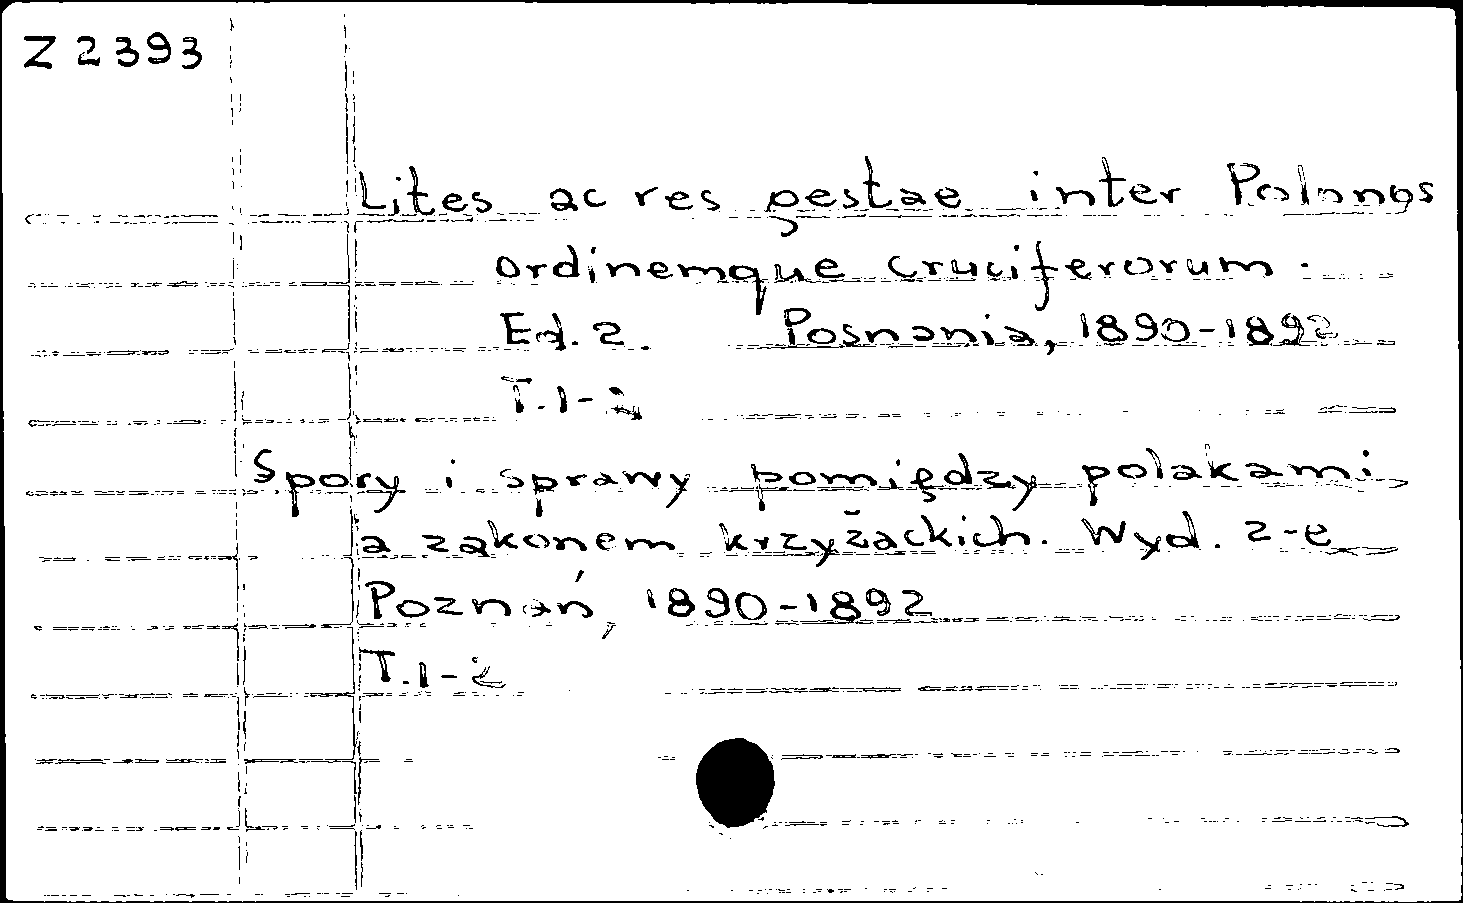 Z 2393
Lites ac res gestae inter Polonos
ordinemque cruciferorum.
Ed. 2. Posnania, 1890-1892
T.1-2
Spory i sprawy pomiędzy polakami
a zakonem krzyżackich. Wyd. 2-e
Poznań, 1890-1892
T.1-2